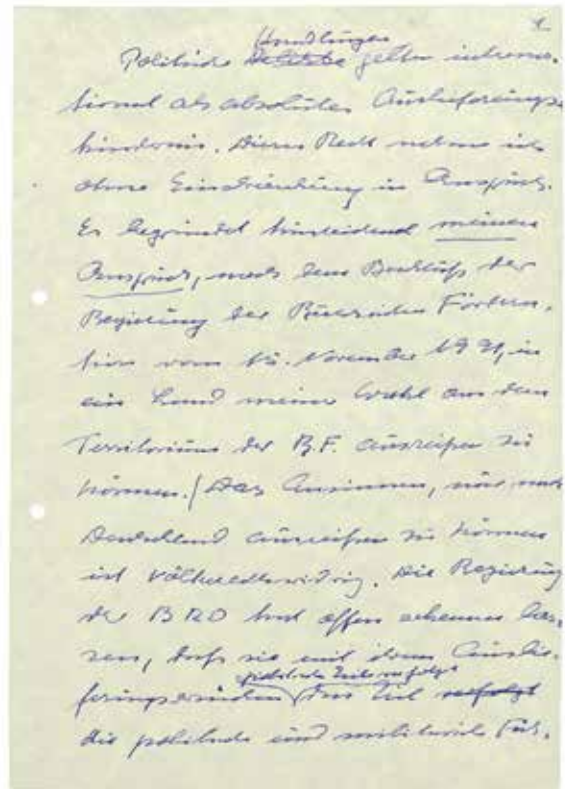 1.
Handlungen
Politische Delikte gelten interna-
tional als absolutes Auslieferungs-
hindernis. Dieses Recht nehme ich
ohne Einschränkung in Anspruch.
Es begründet hinreichend meinen
Anspruch, nach dem Beschluß der
Regierung der Russischen Födera-
tion vom 15. November 1991, in
ein Land meiner Wahl aus dem
Territorium der R.F. ausreisen zu
können. / Das Ansinnen, nur nach
Deutschland ausreisen zu können
ist völkerrechtswidrig. Die Regierung
der BRD hat offen erkennen las-
sen, daß sie mit dem Ausлie-
politische Ziele verfolgt
ferungsersuchen das Ziel verfolgt
die politische und militärische Füh-